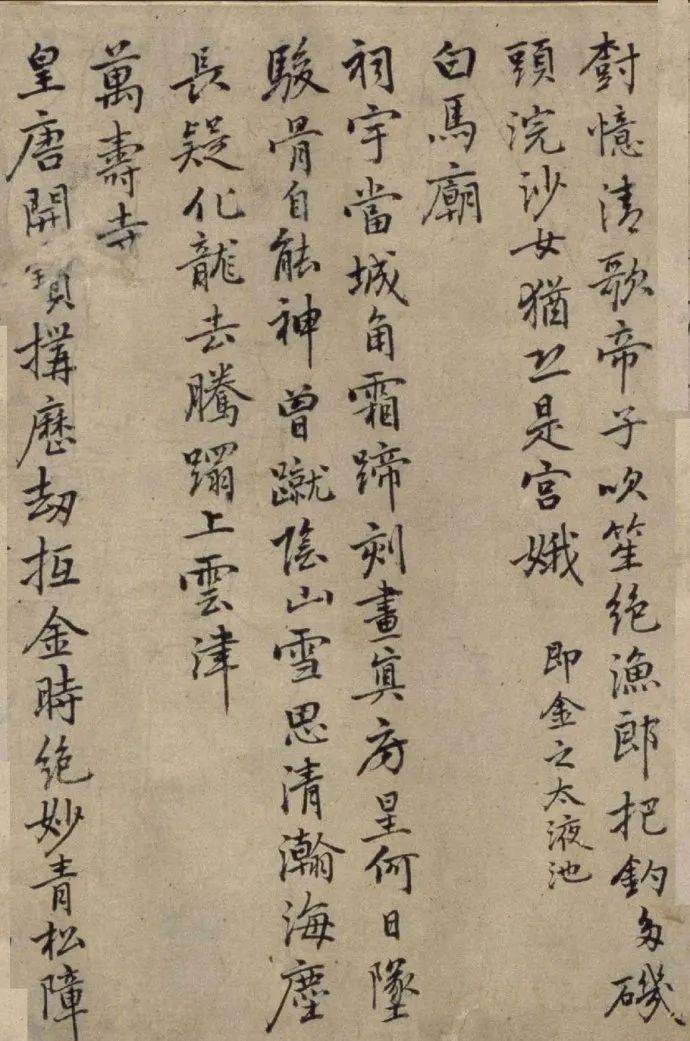 樹憶清歌帝子吹笙绝漁郎把釣多磯
頭浣沙女猶恐是宮娥 即金之太液池
白馬廟
祠宇當城角霜蹄刻畫真房星何日墜
駿骨自能神曾蹴陰山雪思清瀚海塵
長疑化龍去騰躍上雲津
萬壽寺
皇唐開寳搆歷劫抵金時絕妙青松障